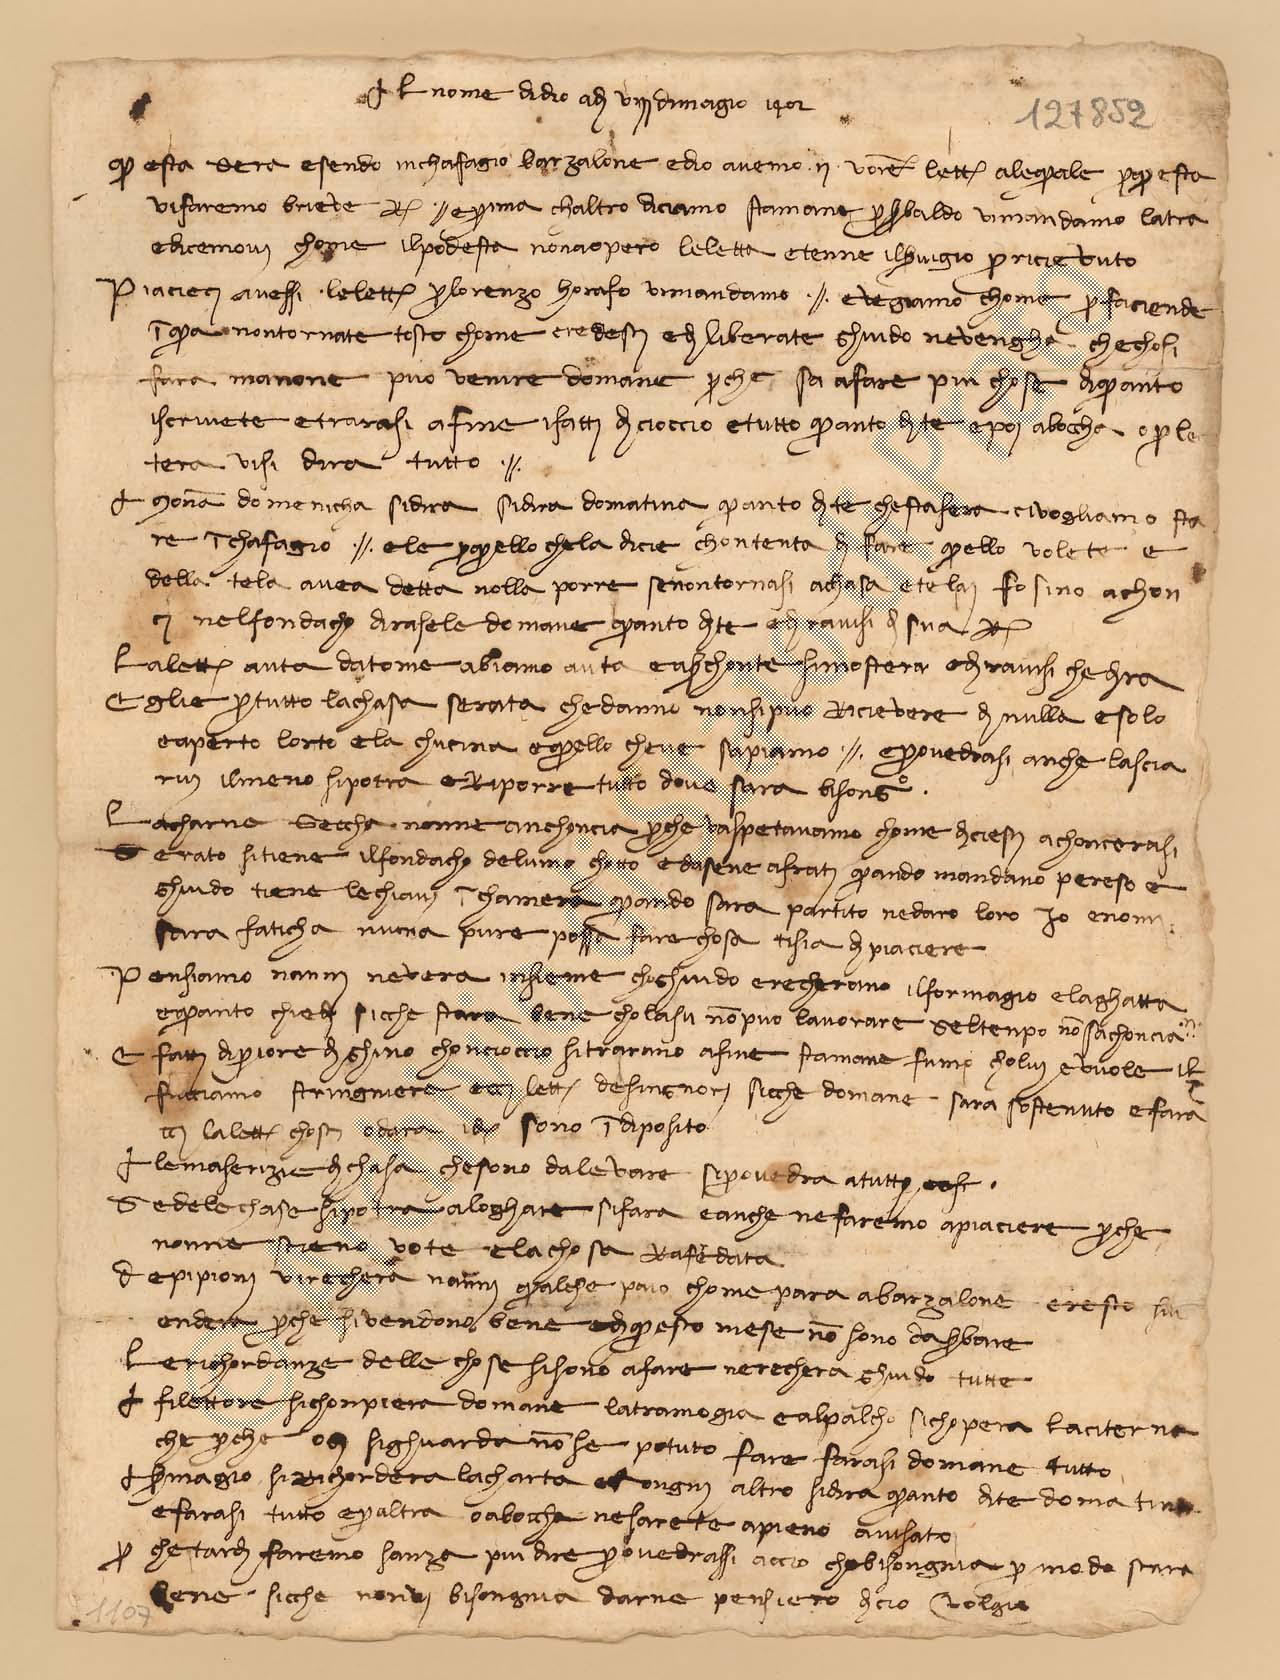 Al nome di dio a dì viiii di magio 1402
127852
questa sera esendo in chafagio barzalone ed io avemo ii vostre lettere ale quale per questa
vi faremo brieve R // e prima ch'altro diciamo stamane per baldo vi mandamo l'atra
e dicemovi chome il podestà nonn aopero le letta e tenne il servigio per ricievuto
Piacieci avessi le lettere per lorenzo horafo vi mandamo // e vegiamo chome per faciende
I qua non tornate tosto chome credesti e diliberate ghuido ne vengha che chosì
farà ma none può venire domane perché s'à a fare più chose di quanto
iscrivete e trarasi a fine i fatti di cioccio e tutto quanto dite e poi a boccha o per le
tera vi si dirà tutto //
A mona domenicha si dirà si dirà domatina quanto dite che stasera ci vogliamo sta
re I chafagio // e le per quello che la dicie chontenta di fare quello volete e
della tela avea detta nolla porre se non tornasi a chasa e telai fosino achon
ci nel fondacho dirasele domane quanto dite e diravisi di sua R
La lettera auta da tome abiamo auta e a ser chonte si mosterà e diravisi che dirà
Egli è per tutto la chasa serata che danno non si può ricievere di nulla e solo
è aperto l'orto e la chucina e quello che ve sapiamo // e provedrasi anche lascia
rvi il meno si potrà e riporre tutto dove sarà bisongo
La charne seccha nonn è anchoncia perché v'aspetavamo chome diciesti achoncerasi
Serato si tiene il fondacho del vino chotto e dasene a frati quando mandano per eso e
ghuido tiene le chiavi I chamera quando sarà partito ne darò loro Io e non mi
sarà faticha niuna pure possa fare chosa ti sia di piaciere
Pensiamo nanni ne verà insieme cho ghuido e recherano il formagio e la ghatta
e quanto chiede sicché starà bene cholasù non può lavorare se 'l tenpo non s'achoncia
E fatti di priore di ghino chon cioccio si trarano a fine stamane fumo cholui e vuole il
facciamo stringniere e cci lettera de singnori sicché domane sarà sostenuto e farà
cci la lettera chosti o darà i danari sono I diposito
A le maserizie di chasa che sono da levare si provedrà a tutto
Se de le chase si potrà aloghare si farà e anche ne faremo a piaciere perché
nonne stieno vote e la chosa rafredata
De pipioni vi recherà nanni qualche paio chome parà a barzalone e resto si v
enderà perché si vendono bene e di questo mese non sono da serbare
Le richordanze delle chose si sono a fare ne recherà ghuido tutte
Al filettore si chonpierà domane la tramogia e al palcho si chopera la citerna
che perché ogi si ghuarda non s'è potuto fare farasi domane tutto
A ser magio si richorderà la charta e d'ongni altro si dirà quanto dite domatina
e farasi tutto e per altra o a boccha ne sarete a pieno avisato
Per che tardi faremo sanza più dire provedrassi a cciò ch'è bisongnia per modo starà
bene sicché non vi bisongnia darne pensiero di ciò
1107